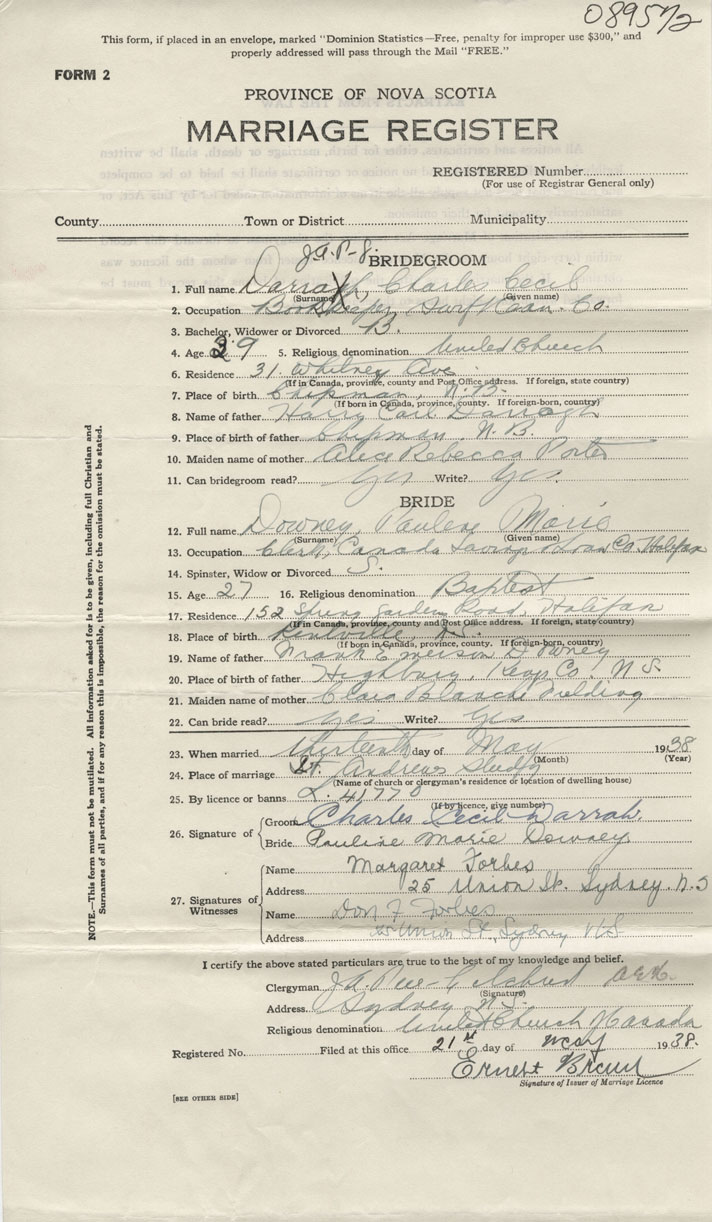 089572
This form, if placed in an envelope, marked "Dominion Statistics—Free, penalty for improper use $300," and
properly addressed will pass through the Mail "FREE."
FORM 2
PROVINCE OF NOVA SCOTIA
MARRIAGE REGISTER
REGISTERED Number
(For use of Registrar General only)
County Town or District Municipality
J.A.P-G. BRIDEGROOM
1. Full name Darragh, Charles Cecil
(Surname) (Given name)
2. Occupation Bookkeeper Co.
3. Bachelor, Widower or Divorced B.
4. Age 29 5. Religious denomination United Church
6. Residence 31 Whitney Ave.
(If in Canada, province, county and Post Office address. If foreign, state country)
7. Place of birth Chipman, N.B.
(If born in Canada, province, county. If foreign-born, country)
8. Name of father Harry Carl Darragh
9. Place of birth of father Chipman, N.B.
10. Maiden name of mother Alice Rebecca Porter
11. Can bridegroom read? Yes Write? Yes.
BRIDE
12. Full name Downey, Pauline Marie
(Surname) (Given name)
13. Occupation Clerk, Canada Savings & Loan Co. Halifax
14. Spinster, Widow or Divorced S.
15. Age 27 16. Religious denomination Baptist
17. Residence 152 Spring Garden Road, Halifax
(If in Canada, province, county and Post Office address. If foreign, state country)
18. Place of birth Kentville,
(If born in Canada, province, county. If foreign-born, country)
19. Name of father Emerson Downey
20. Place of birth of father Highbury, Kings Co. N.S.
21. Maiden name of mother Clara Blanche Fielding
22. Can bride read? Yes Write? Yes
23. When married thirteenth day of May 1938
(Month) (Year)
24. Place of marriage St. Andrews Sydney
(Name of church or clergyman's residence or location of dwelling house)
25. By licence or banns L. 41778
(If by licence, give number)
26. Signature of
Groom Charles Cecil Darrah.
Bride Pauline Marie Downey
27. Signatures of Witnesses
Name Margaret Forbes
Address 25 Union St. Sydney. N.S
Name Don F. Forbes
Address 25 Union St., Sydney N.S.
I certify the above stated particulars are true to the best of my knowledge and belief.
Clergyman
(Signature)
Address Sydney N.S.
Religious denomination United Church Canada
Registered No. Filed at this office 21st day of May 1938.
Ernest Brown
Signature of Issuer of Marriage Licence
[SEE OTHER SIDE]
NOTE.—This form must not be mutilated. All information asked for is to be given, including full Christian and
Surnames of all parties, and if for any reason this is impossible, the reason for the omission must be stated.